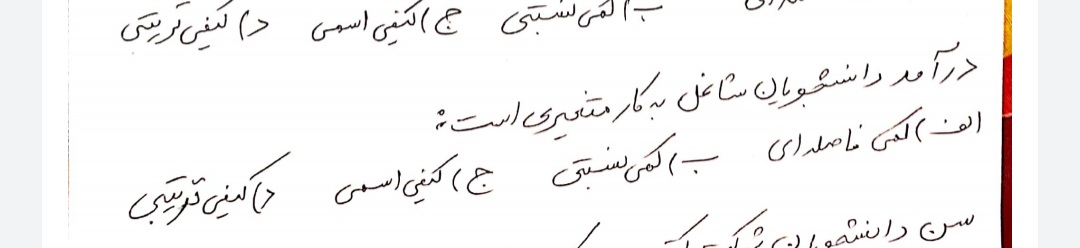 ب) کمی نسبتی ج) کیفی اسمی د) کیفی ترتیبی
درآمد دانشجویان شاغل به کار متغیری است:
الف) کمی فاصله‌ای ب) کمی نسبتی ج) کیفی اسمی د) کیفی ترتیبی
سن دانشجویان